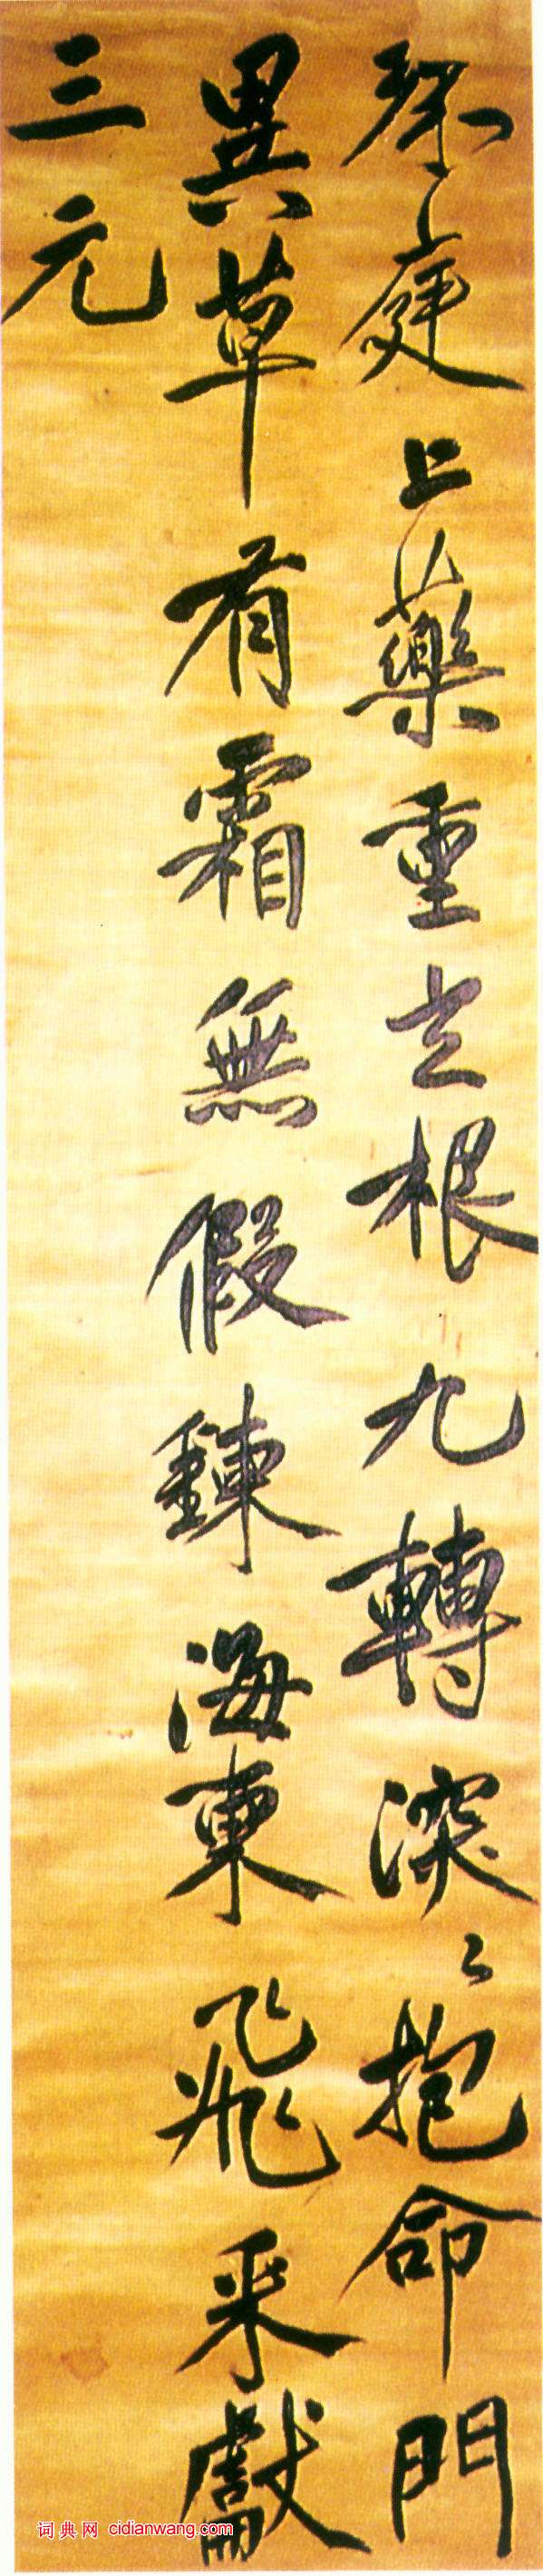 庭上藥重玄根九轉深〻抱命門
異草有霜無假鍊海東飛采獻
三元
词典网 cidianwang.com